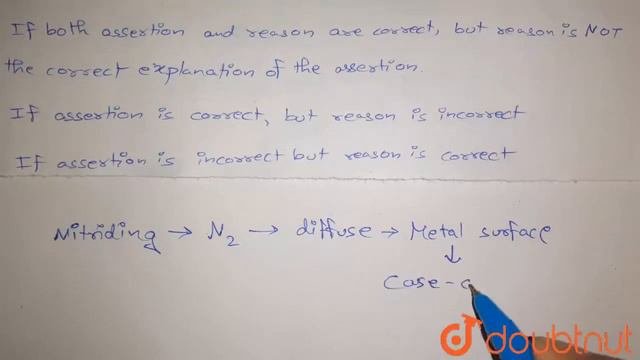 If both assertion and reason are correct, but reason is NOT
the correct explanation of the assertion.
If assertion is correct, but reason is incorrect
If assertion is incorrect but reason is correct
Nitriding → N2 → diffuse → Metal surface
↓
Case-
doubtnut